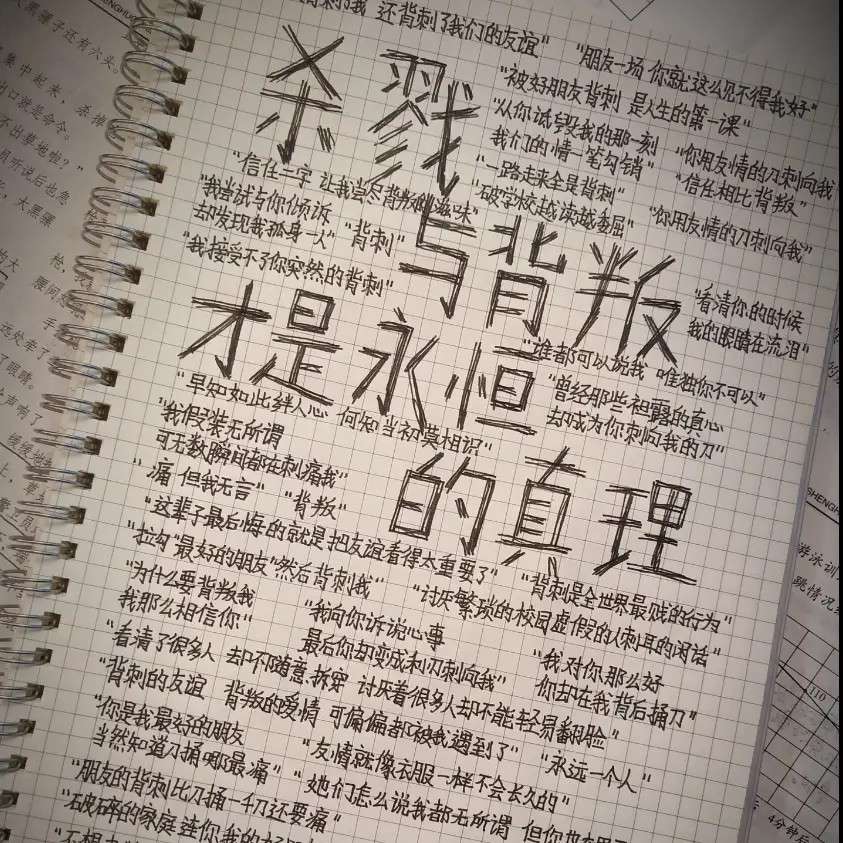 背刺了我 还背刺了我们的友谊"
"朋友一场 你就这么见不得我好"
"被好朋友背刺 是人生的第一课"
杀戮
"从你诋毁我的那一刻
我们的情一笔勾销"
"你用友情的刀刺向我
"一路走来全是背刺"
"信任相比背叛"
"破学校越读越委屈"
"你用友情的刀刺向我"
"信任二字 让我尝尽背叛的滋味"
"我尝试与你倾诉
却发现我孤身一人"
"背刺"
"我接受不了你突然的背刺"
与背叛
"看清你的时候
我的眼睛在流泪"
才是永恒
"谁都可以说我 唯独你不可以"
"曾经那些袒露的真心
却成为你刺向我的刀"
"早知如此绊人心 何知当初莫相识"
"我假装无所谓
可无数瞬间都在刺痛我"
的真理
"痛 但我无言"
"背叛"
"这辈子最后悔的就是把友谊看得太重要了"
"背刺是全世界最贱的行为"
"拉勾"最好的朋友"然后背刺我"
"讨厌繁琐的校园虚假的人刺耳的闲话"
"为什么要背叛我
我那么相信你"
"我向你诉说心事
最后你却变成利刃刺向我"
"我对你那么好
你却在我背后捅刀"
"看清了很多人 却不能随意拆穿 讨厌着很多人却不能轻易翻脸"
"背刺的友谊 背叛的爱情 可偏偏都被我遇到了"
"永远一个人"
"你是我最好的朋友
当然知道刀捅哪最痛"
"友情就像衣服一样不会长久的"
"朋友的背刺比刀捅一千刀还要痛"
"她们怎么说我都无所谓 但你
"破碎的家庭
"不想
六头。
集中起来，
出口就是命令。
不出墓地啦？"
机听说后也忽
大黑骡
手
了眼睛。
声响了
游泳训
跳情况
110
4分钟后